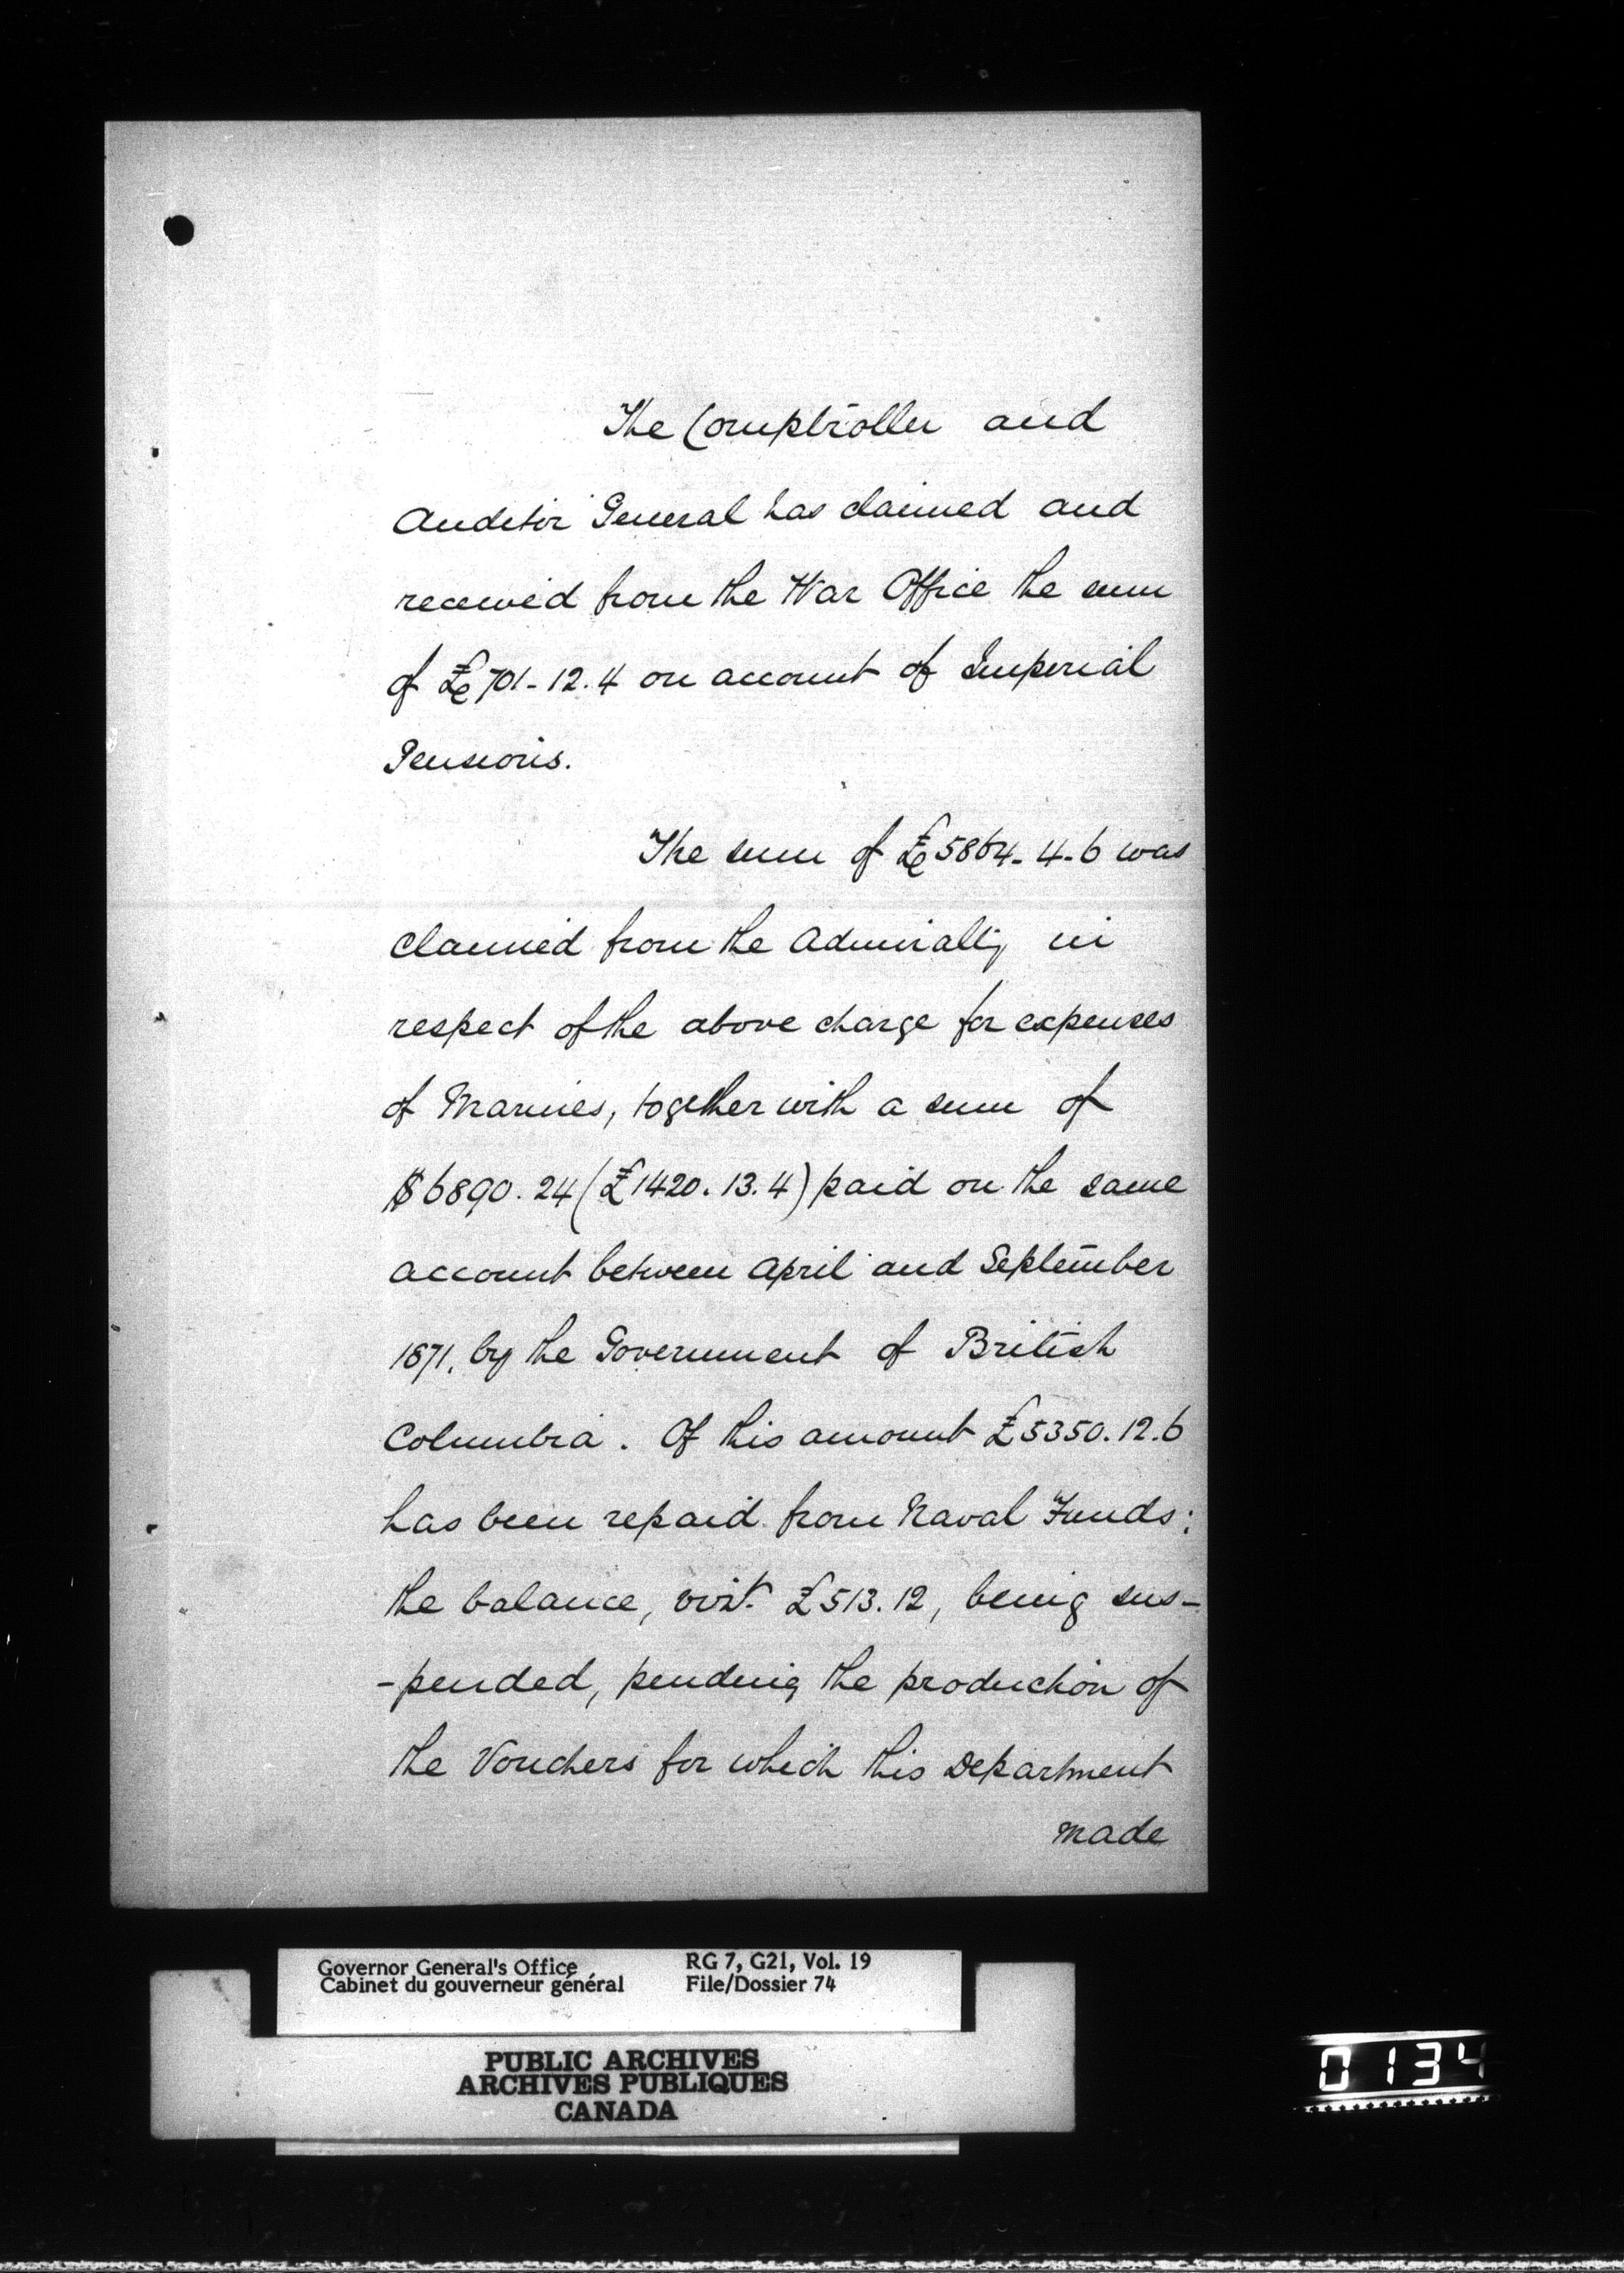 The Comptroller and
Auditor General has claimed and
received from the War Office the sum
of £701-12.4 on account of Imperial
Pensions.
The sum of £5864-4-6 was
claimed from the Admiralty in
respect of the above charge for expenses
of Marines, together with a sum of
$6890.24 (£1420.13.4) paid on the same
account between April and September
1871, by the Government of British
Columbia. Of this amount £5350.12.6
has been repaid from Naval Funds:
the balance, vizt. £513.12, being sus-
-pended, pending the production of
the Vouchers for which this Department
made
Governor General's Office
Cabinet du gouverneur général
RG 7, G21, Vol. 19
File/Dossier 74
PUBLIC ARCHIVES
ARCHIVES PUBLIQUES
CANADA
0134